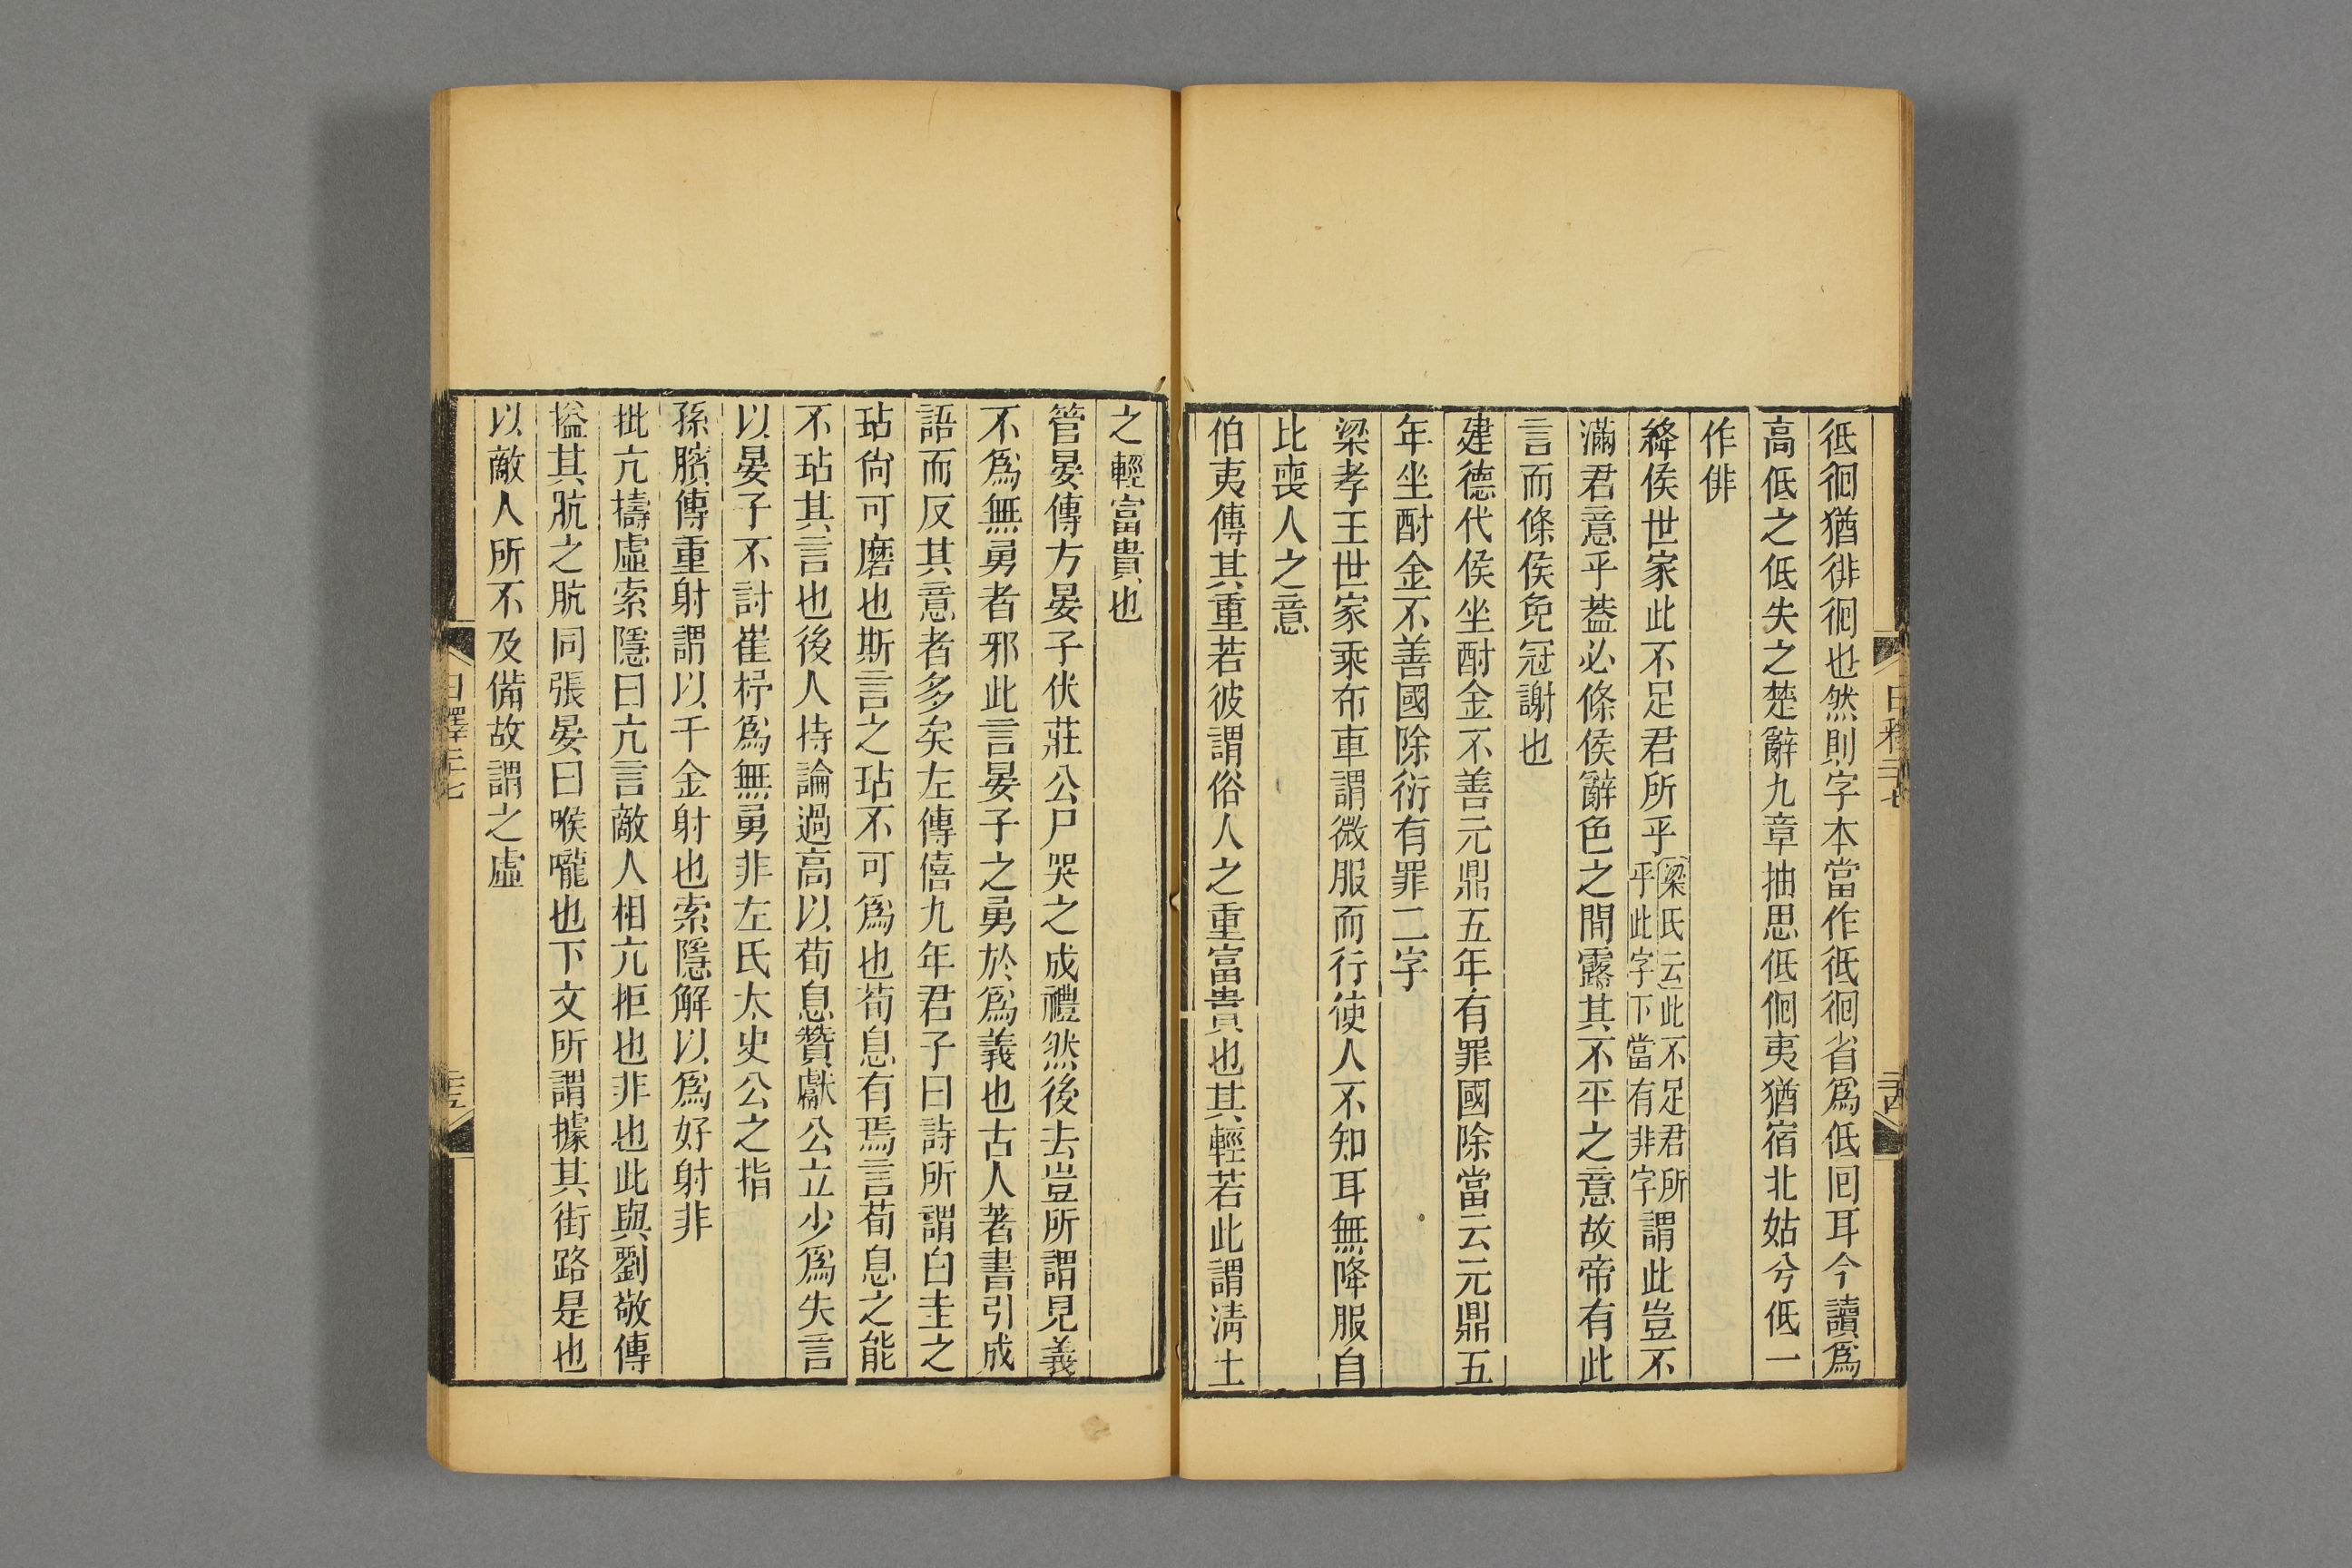 彽徊猶徘徊也然則字本當作彽徊省爲低回耳今讀爲
高低之低失之楚辭九章抽思低佪夷猶宿北姑兮低一
作俳
絳侯世家此不足君所乎梁氏云此不足君所乎此字下當有非字謂此豈不
滿君意乎葢必條侯辭色之間露其不平之意故帝有此
言而條侯免冠謝也
建德代侯坐酎金不善元鼎五年有罪國除當云元鼎五
年坐酎金不善國除衍有罪二字
梁孝王世家乘布車謂微服而行使人不知耳無降服自
比喪人之意
伯夷傳其重若彼謂俗人之重富貴也其輕若此謂淸士
日釋二十七
二十四
之輕富貴也
管晏傳方晏子伏莊公尸哭之成禮然後去豈所謂見義
不爲無勇者邪此言晏子之勇於爲義也古人著書引成
語而反其意者多矣左傳僖九年君子曰詩所謂白圭之
玷尙可磨也斯言之玷不可爲也荀息有焉言荀息之能
不玷其言也後人持論過高以荀息贊獻公立少爲失言
以晏子不討崔杼爲無勇非左氏太史公之指
孫臏傳重射謂以千金射也索隱解以爲好射非
批亢擣虛索隱曰亢言敵人相亢拒也非也此與劉敬傳
搤其肮之肮同張晏曰喉嚨也下文所謂據其街路是也
以敵人所不及備故謂之虛
日釋二十七
二十五